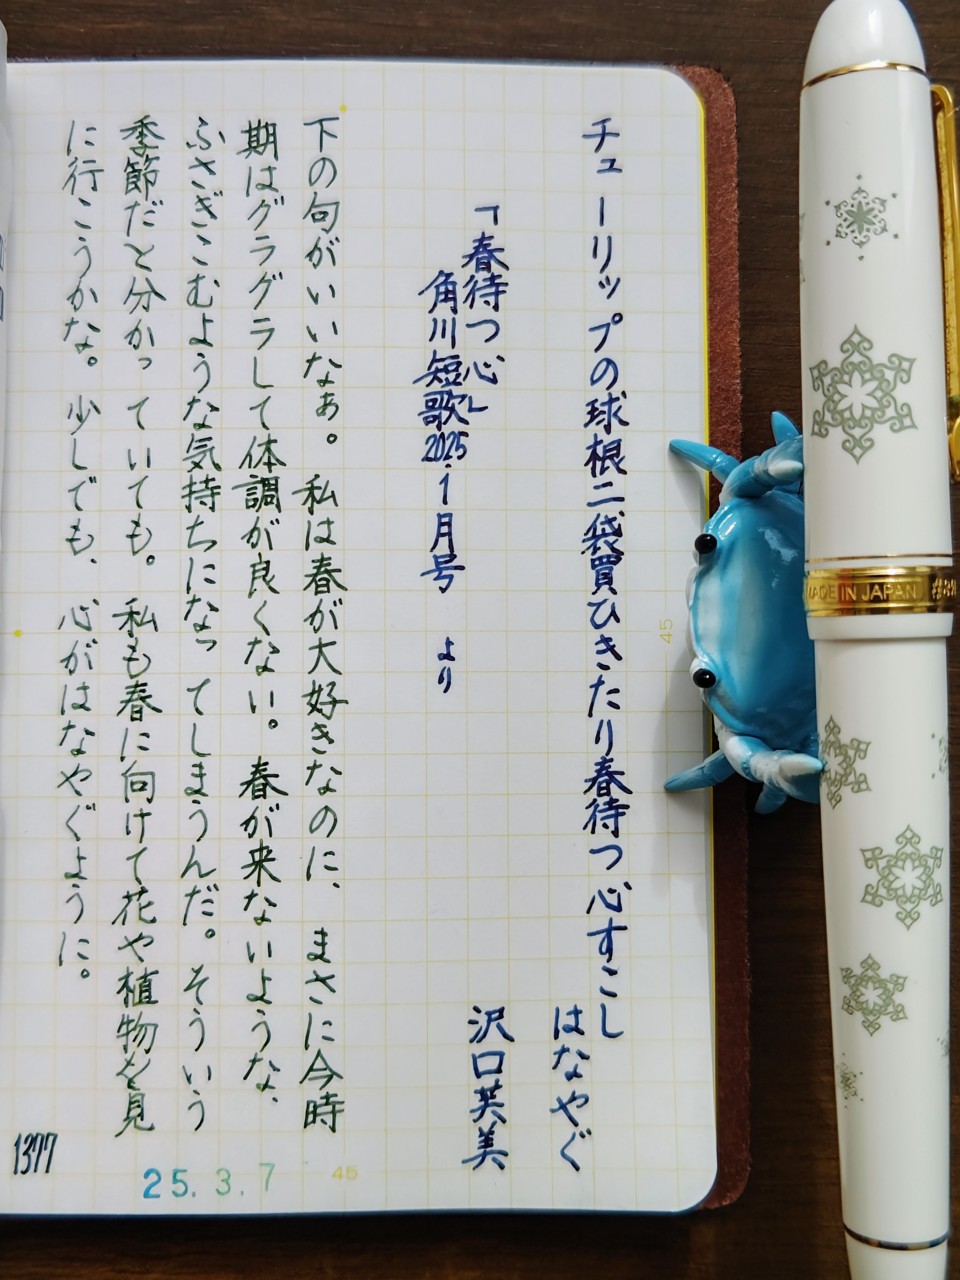 チューリップの球根二袋買ひきたり春待つ心すこし
はなやぐ
沢口芙美
「春待つ心」
角川短歌2025.1月号 より
下の句がいいなぁ。私は春が大好きなのに、まさに今時
期はグラグラして体調が良くない。春が来ないような、
ふさぎこむような気持ちになってしまうんだ。そういう
季節だと分かっていても。私も春に向けて花や植物を見
に行こうかな。少しでも、心がはなやぐように。
1377
25.3.7
45
45
MADE IN JAPAN